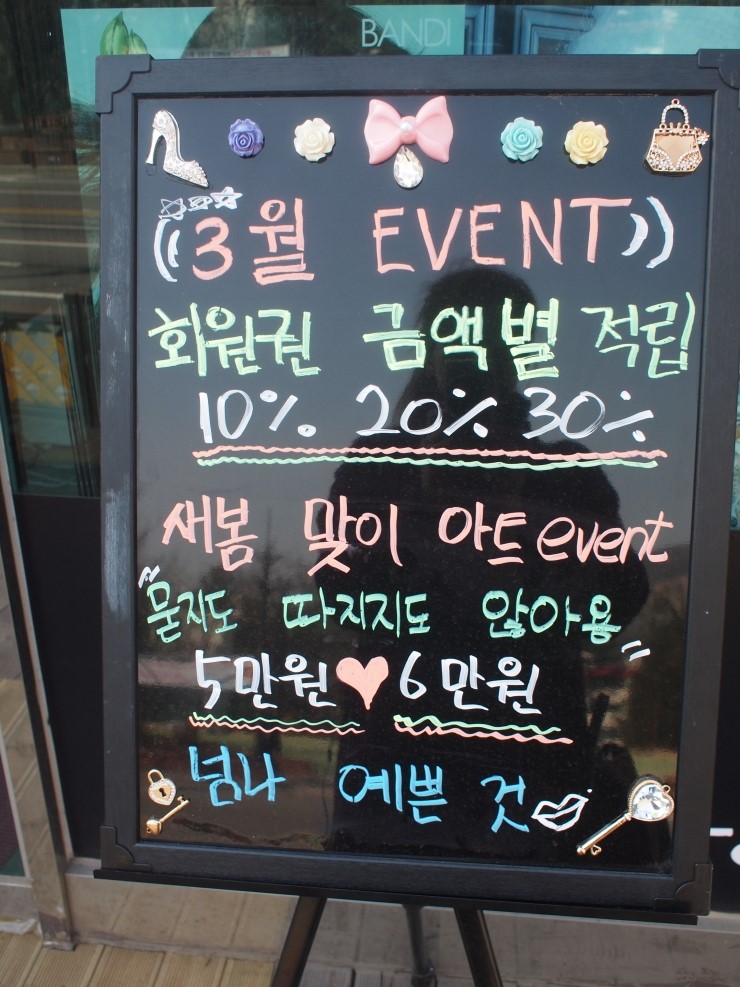 BANDI
3월 EVENT
회원권 금액별 적립
10% 20% 30%
새봄 맞이 아트 event
"묻지도 따지지도 않아용"
5만원 ♥ 6만원
넘나 예쁜 것